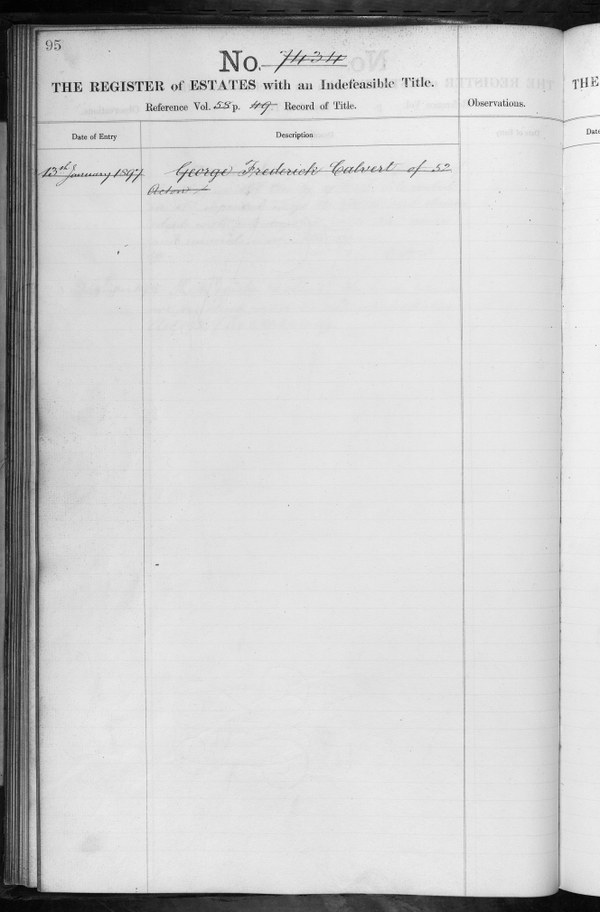 95
No. 7434
THE REGISTER of ESTATES with an Indefeasible Title.
Reference Vol. 55 p. 49 Record of Title.
Observations.
Date of Entry
Description
13th January 1897
George Frederick Calvert of 52
THE
Date